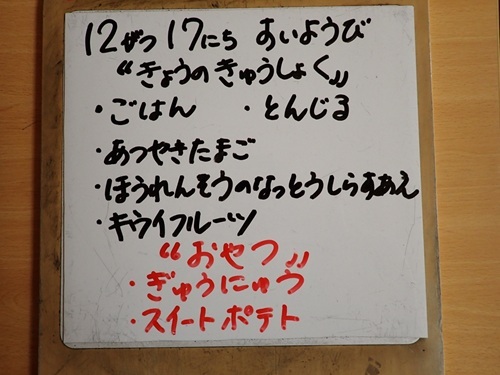 12がつ17にち すいようび
"きょうのきゅうしょく"
・ごはん ・とんじる
・あつやきたまご
・ほうれんそうのなっとうしらすあえ
・キウイフルーツ
"おやつ"
・ぎゅうにゅう
・スイートポテト